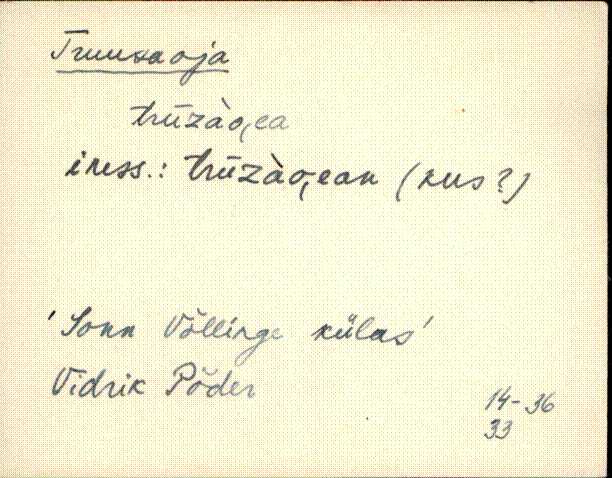 Truusaoja
trūzào̦ea
iness.: trūzào̦ean (kus?)
'Sonn Võllinge külas'
Vidrik Põder
14-36
33